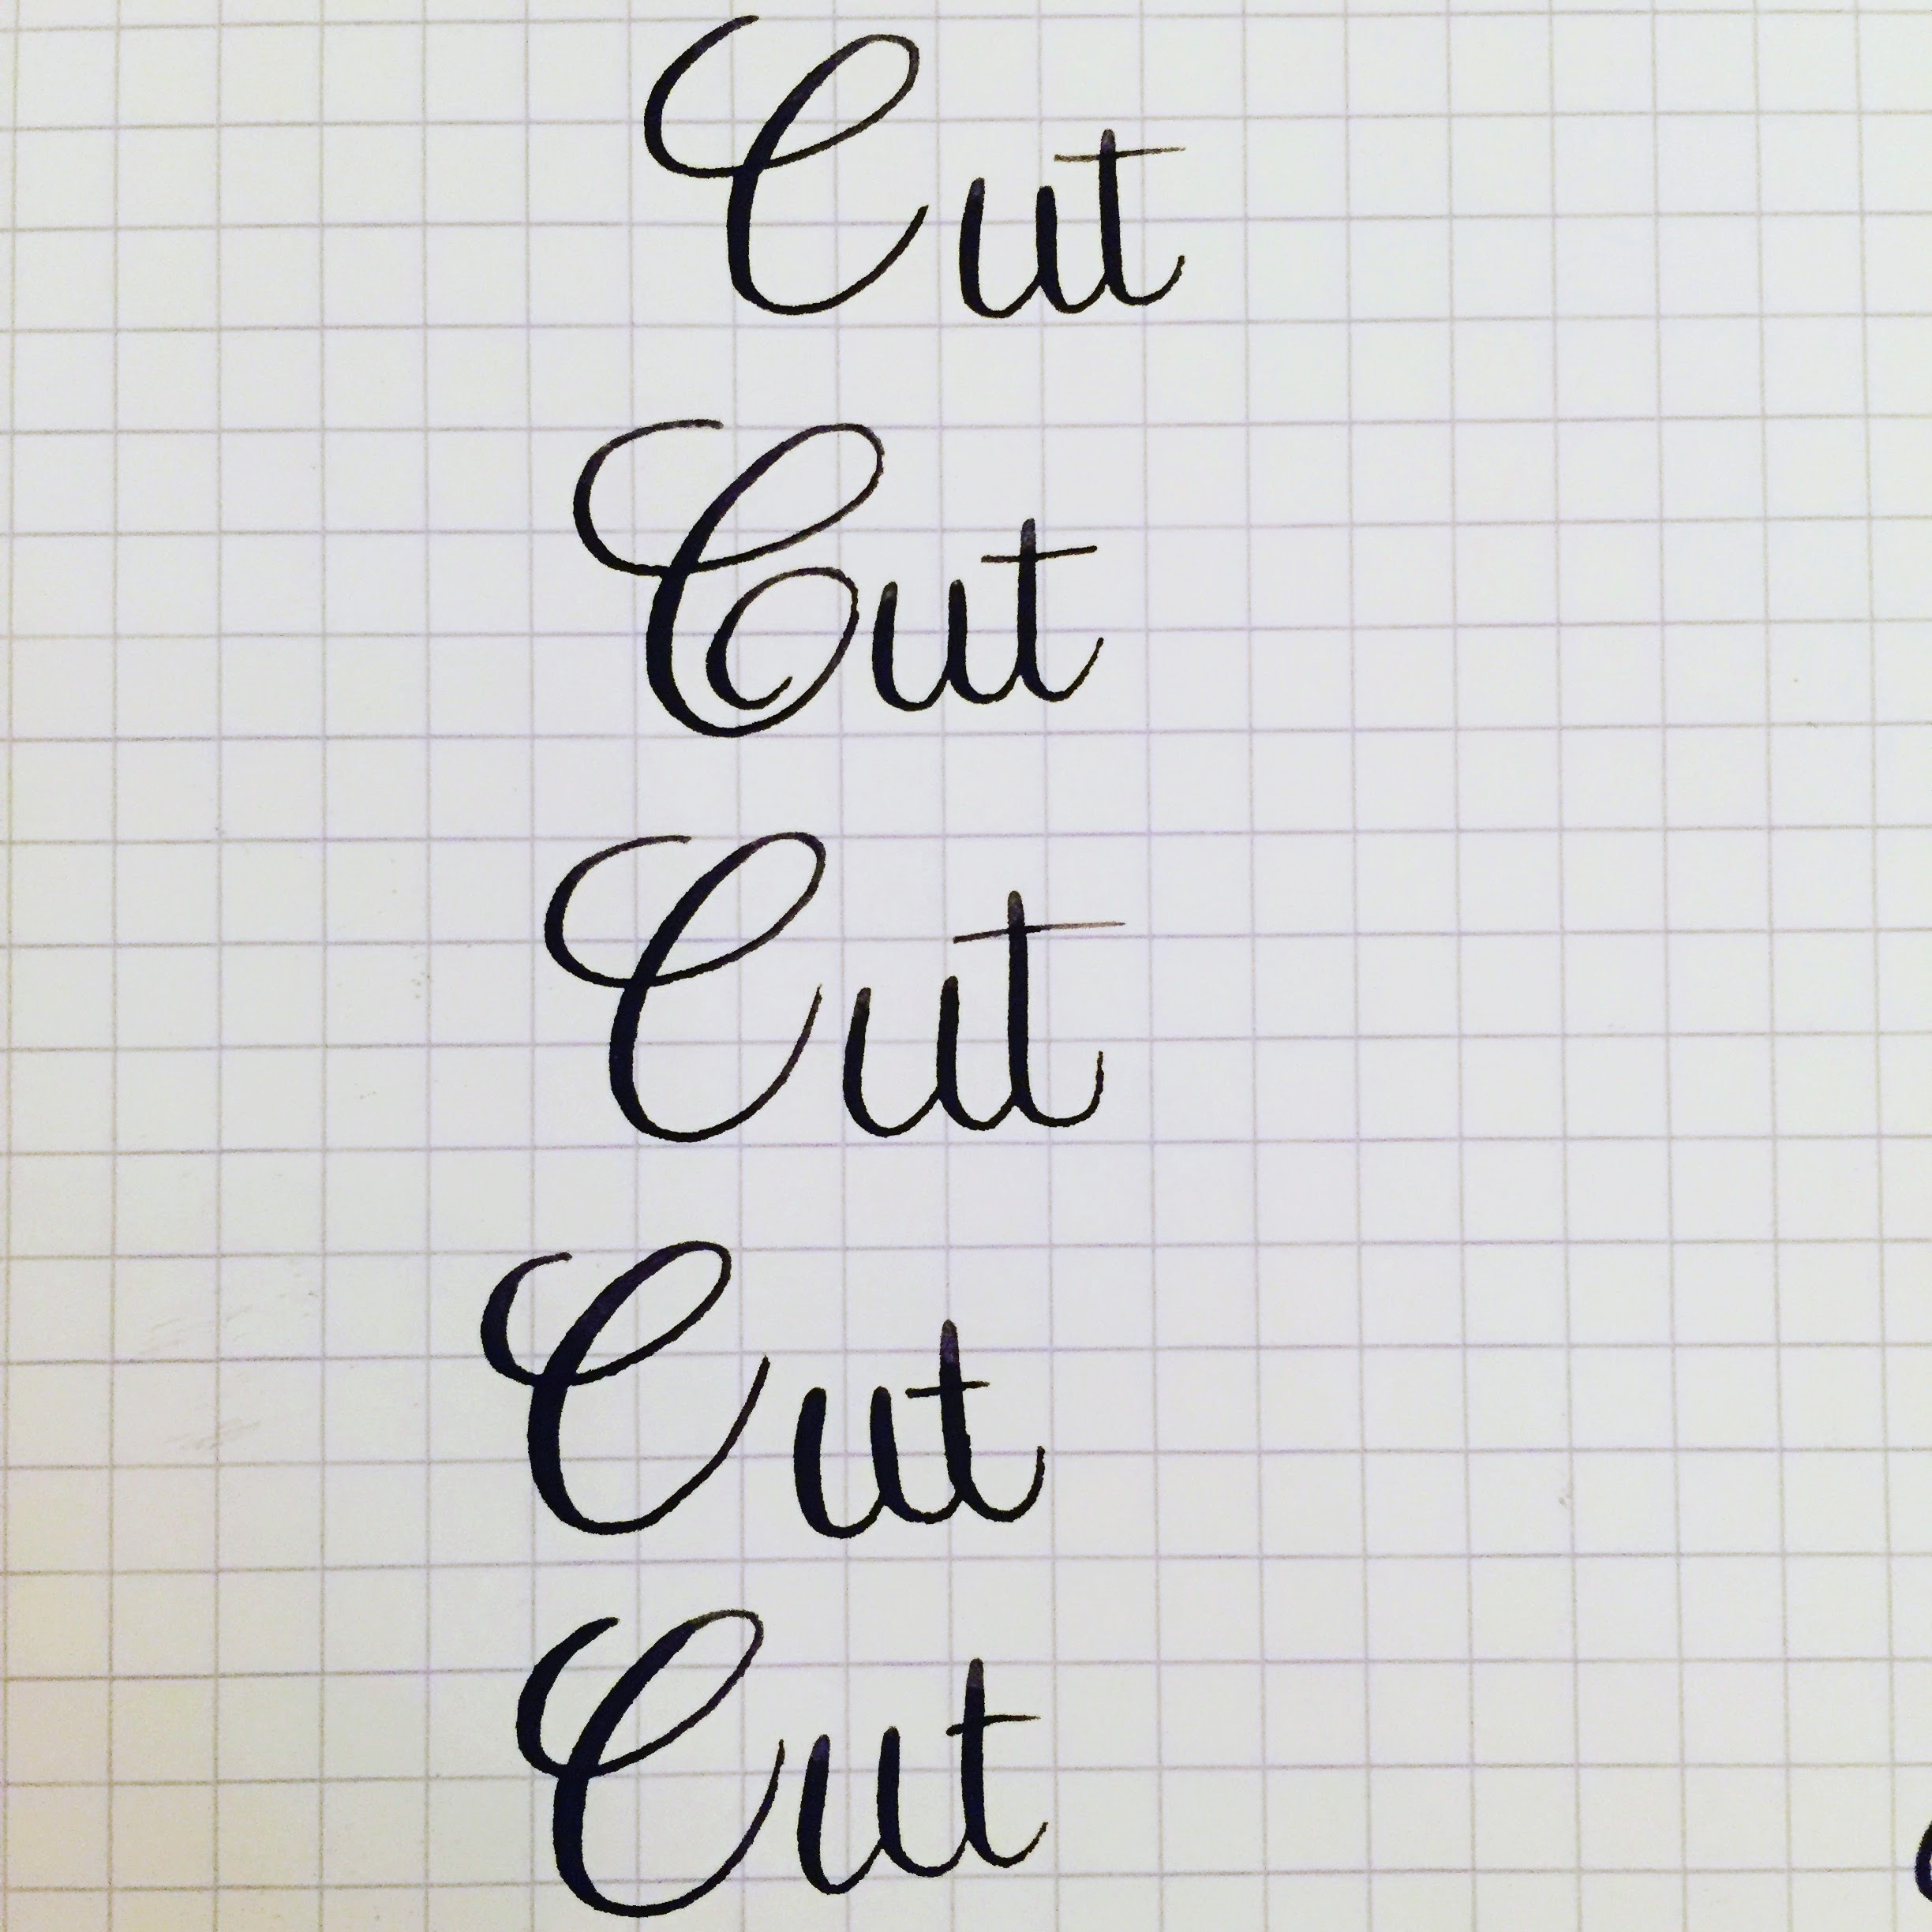 Cut
Cut
Cut
Cut
Cut